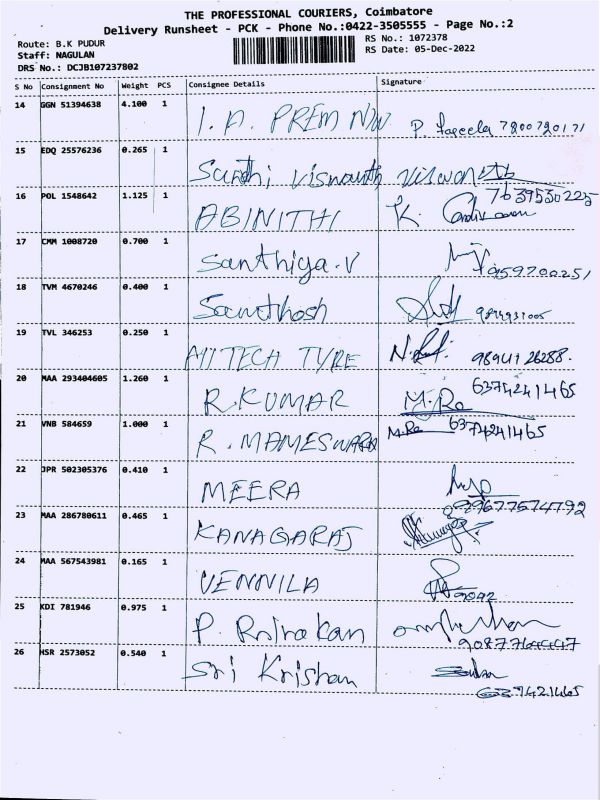 THE PROFESSIONAL COURIERS, Coimbatore
Delivery Runsheet - PCK - Phone No.:0422-3505555 - Page No.:2
Route: B.K PUDUR
RS No.: 1072378
Staff: NAGULAN
RS Date: 05-Dec-2022
DRS No.: DCJB107237802
S No Consignment No Weight PCS Consignee Details Signature
14 GGN 51394638 4.100 1 I.A. PREM NIW P.
15 EDQ 25576236 0.265 1 Santhi Viswanth Viswanth
16 POL 1548642 1.125 1 ABINITHI K. 7639530225
17 CMM 1008720 0.700 1 Santhiya.V 959700251
18 TVM 4670246 0.400 1 Santhosh
19 TVL 346253 0.250 1 MITECH TYRE 9894126288.
20 MAA 293404605 1.260 1 R.KUMAR M.Ra 6374241465
21 VNB 584659 1.000 1 R.MAMESWARA M.Ra 6374241465
22 JPR 502305376 0.410 1 MEERA
23 MAA 286780611 0.465 1 KANAGARAJ
24 MAA 567543981 0.165 1 VENNILA
25 KDI 781946 0.975 1 P.
26 HSR 2573052 0.540 1 Sri Krishan